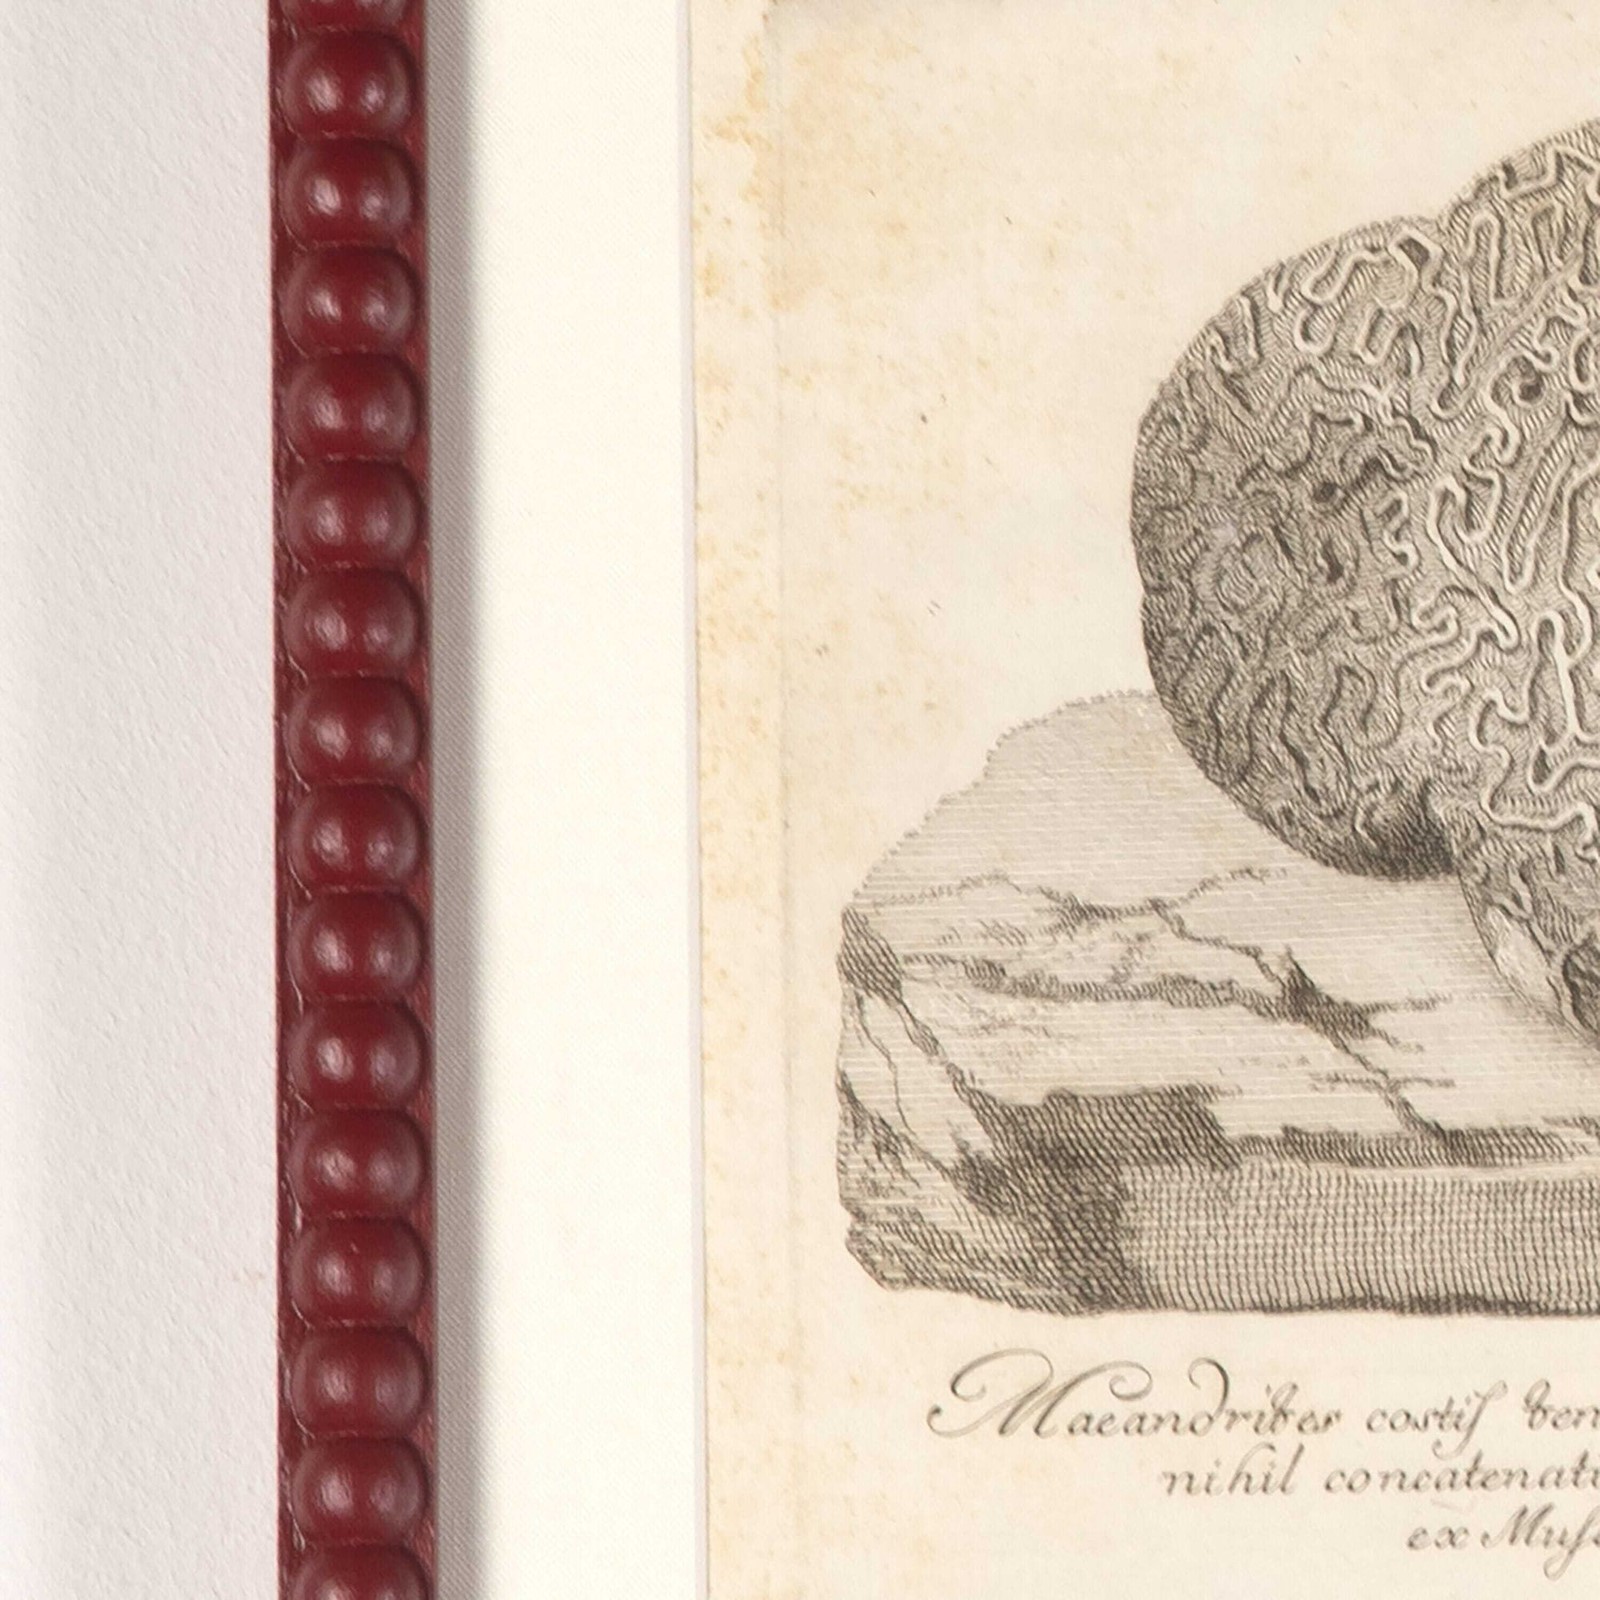 Maeandrites costiſ ten
nihil concatenati
ex Muſ